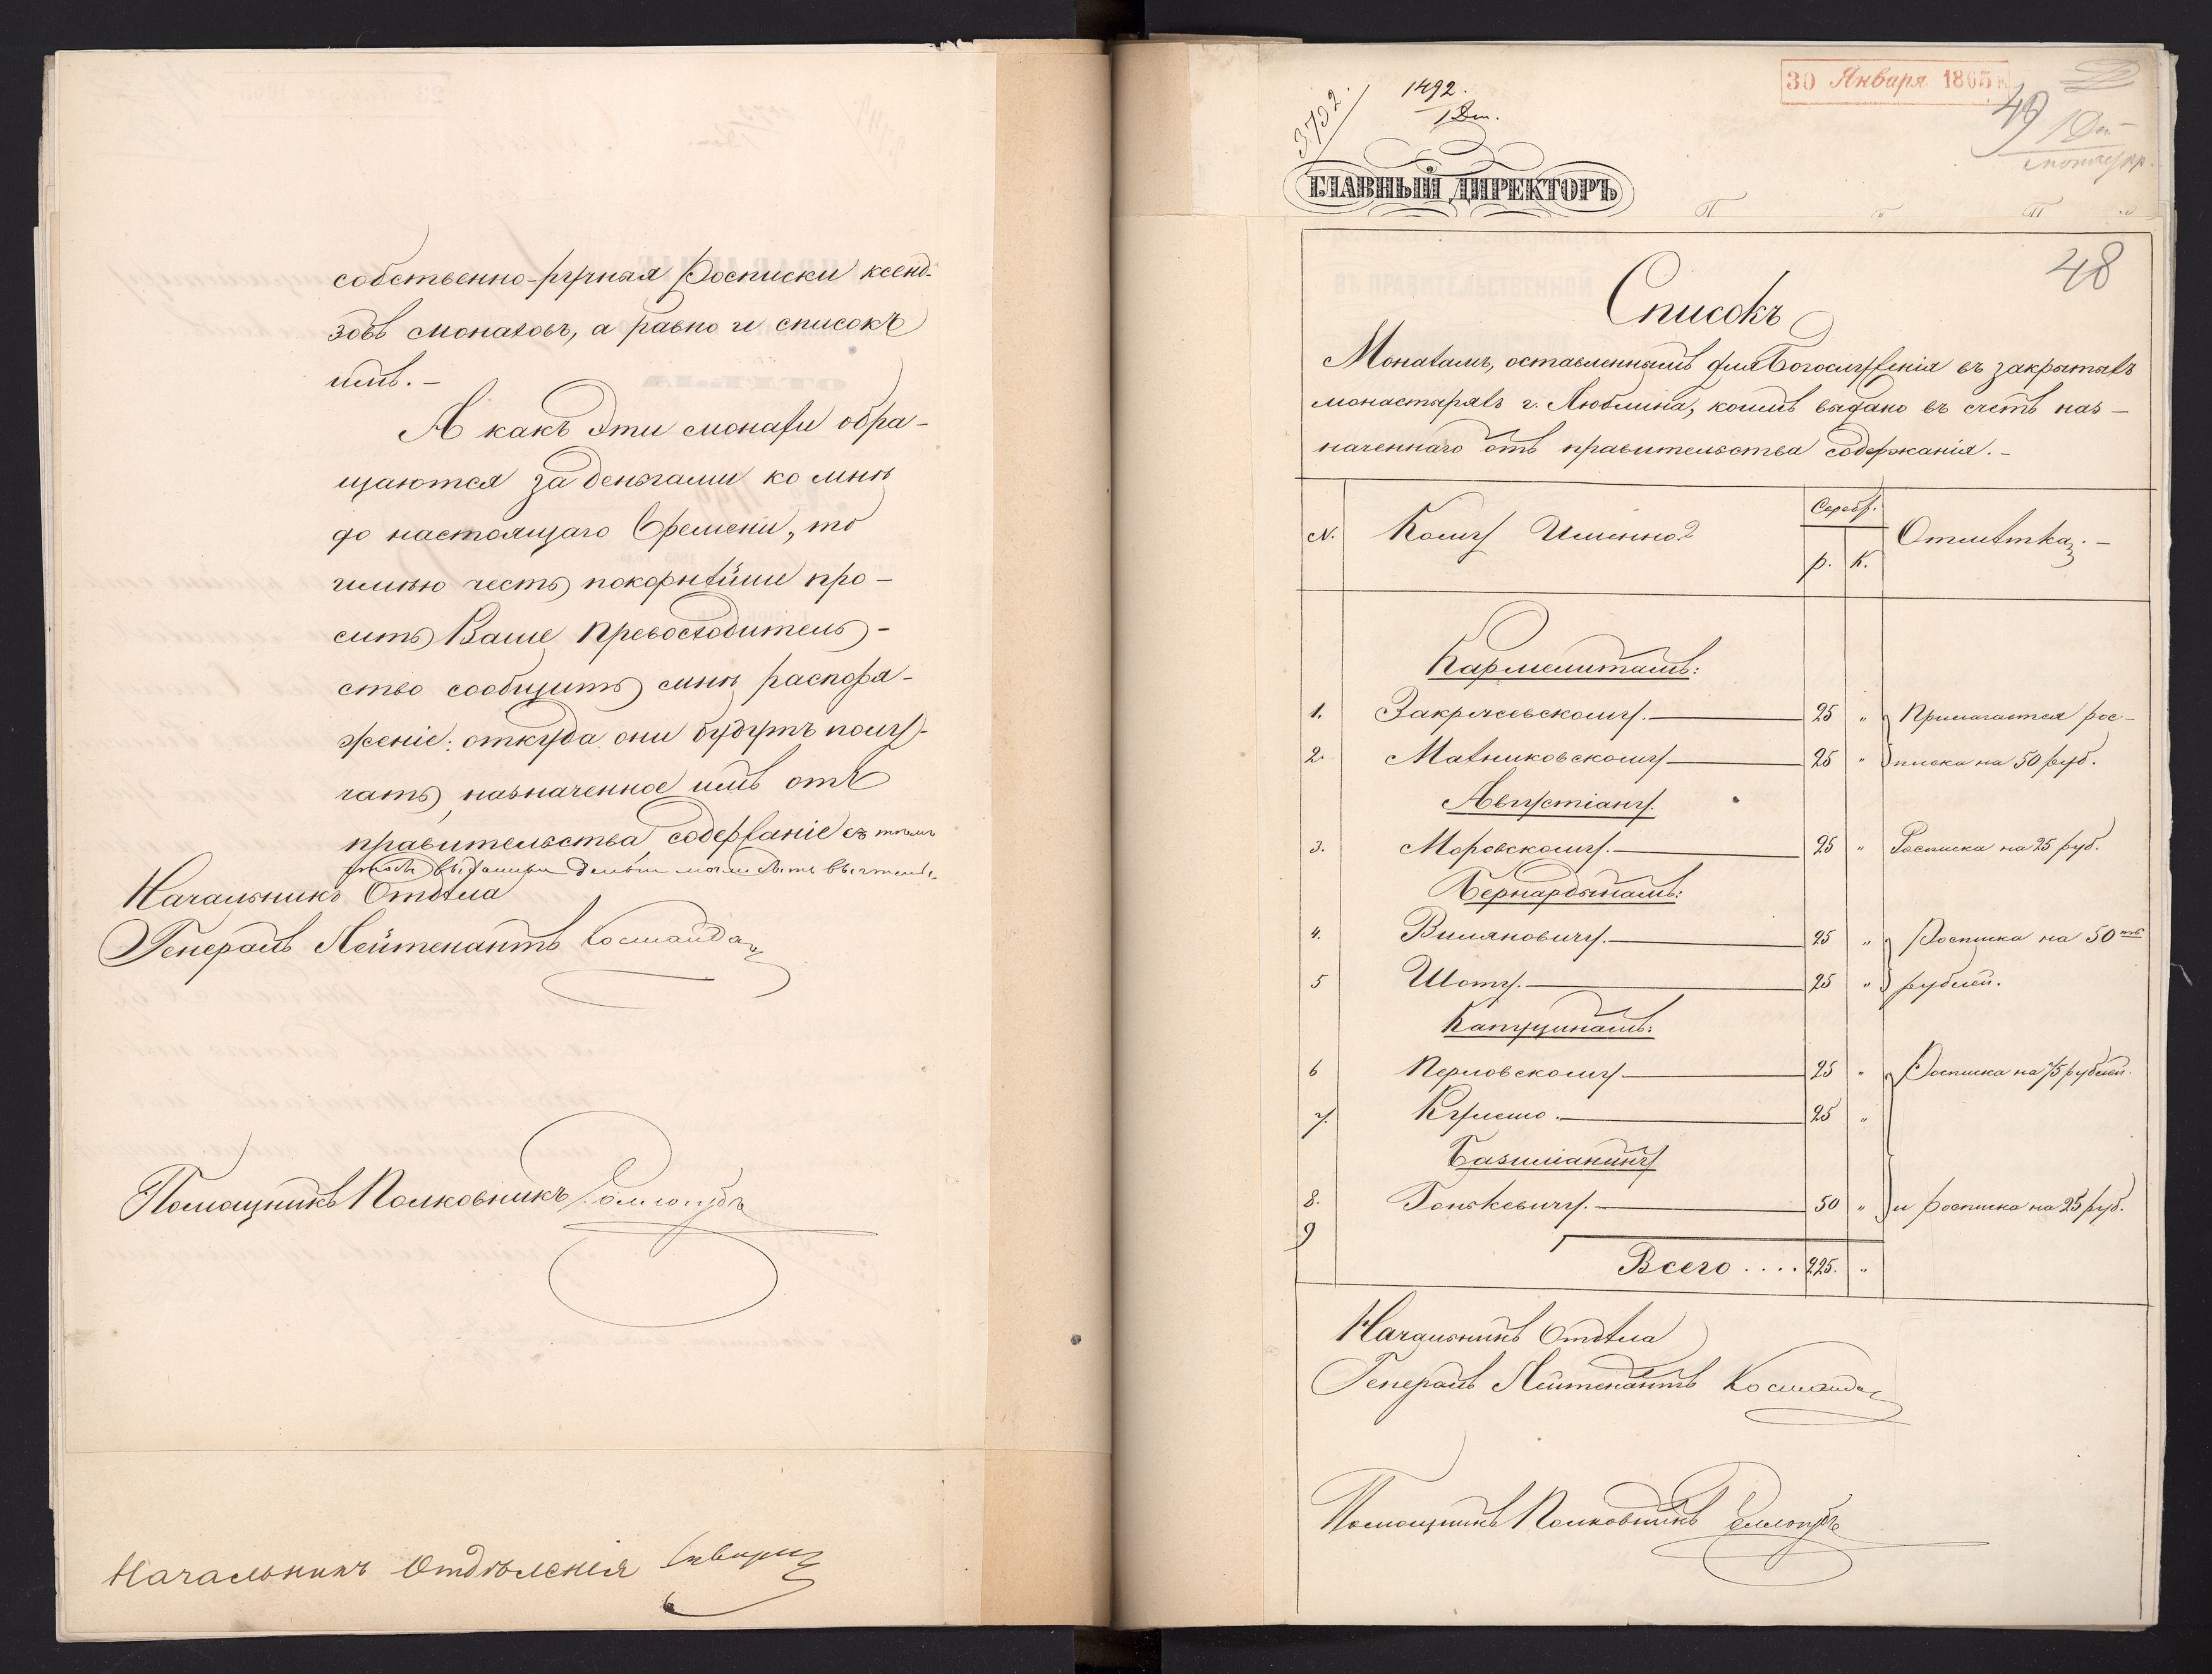 собственно-ручныя росписки ксенд-
зовъ монаховъ, а равно и списокъ
имъ. –
А какъ эти монахи обра-
щаются за деньгами ко мнѣ
до настоящаго времени, то
имѣю честь покорнѣйше про-
сить Ваше Превосходитель-
ство сообщить мнѣ распоря-
женіе: откуда они будутъ полу-
чать назначенное имъ отъ
правительства содержаніе съ тѣмъ
чтобы выданныя деньги могли быть вычтены.
Начальникъ Отдѣла
Генералъ Лейтенантъ
Помощникъ Полковникъ
Начальникъ Отдѣленія
3792.
1492.
30 Января 1865
49
ГЛАВНЫЙ ДИРЕКТОРЪ
48
Списокъ
Монахамъ, оставленнымъ для Богослуженія въ закрытыхъ
монастыряхъ г. Люблина, коимъ выдано въ счетъ наз-
наченнаго отъ правительства содержанія. –
N. Кому Именно? Серебр. р. к. Отмѣтка. –
Кармелитамъ:
1. Закржевскому. 25 " Прилагается рос-
2. Махниковскому 25 " писка на 50 руб.
Августіану.
3. Моровскому. 25 " Росписка на 25 руб.
Бернардынамъ:
4. Виляновичу. 25 " Росписка на 50ть
5 Шоту. 25 " рублей.
Капуцинамъ:
6 Перловскому 25 " Росписка на 75 рублей.
7. 25 "
Базиліанину
8. 50 " и росписка на 25 руб.
9
Всего .... 225. "
Начальникъ Отдѣла
Генералъ Лейтенантъ
Помощникъ Полковникъ